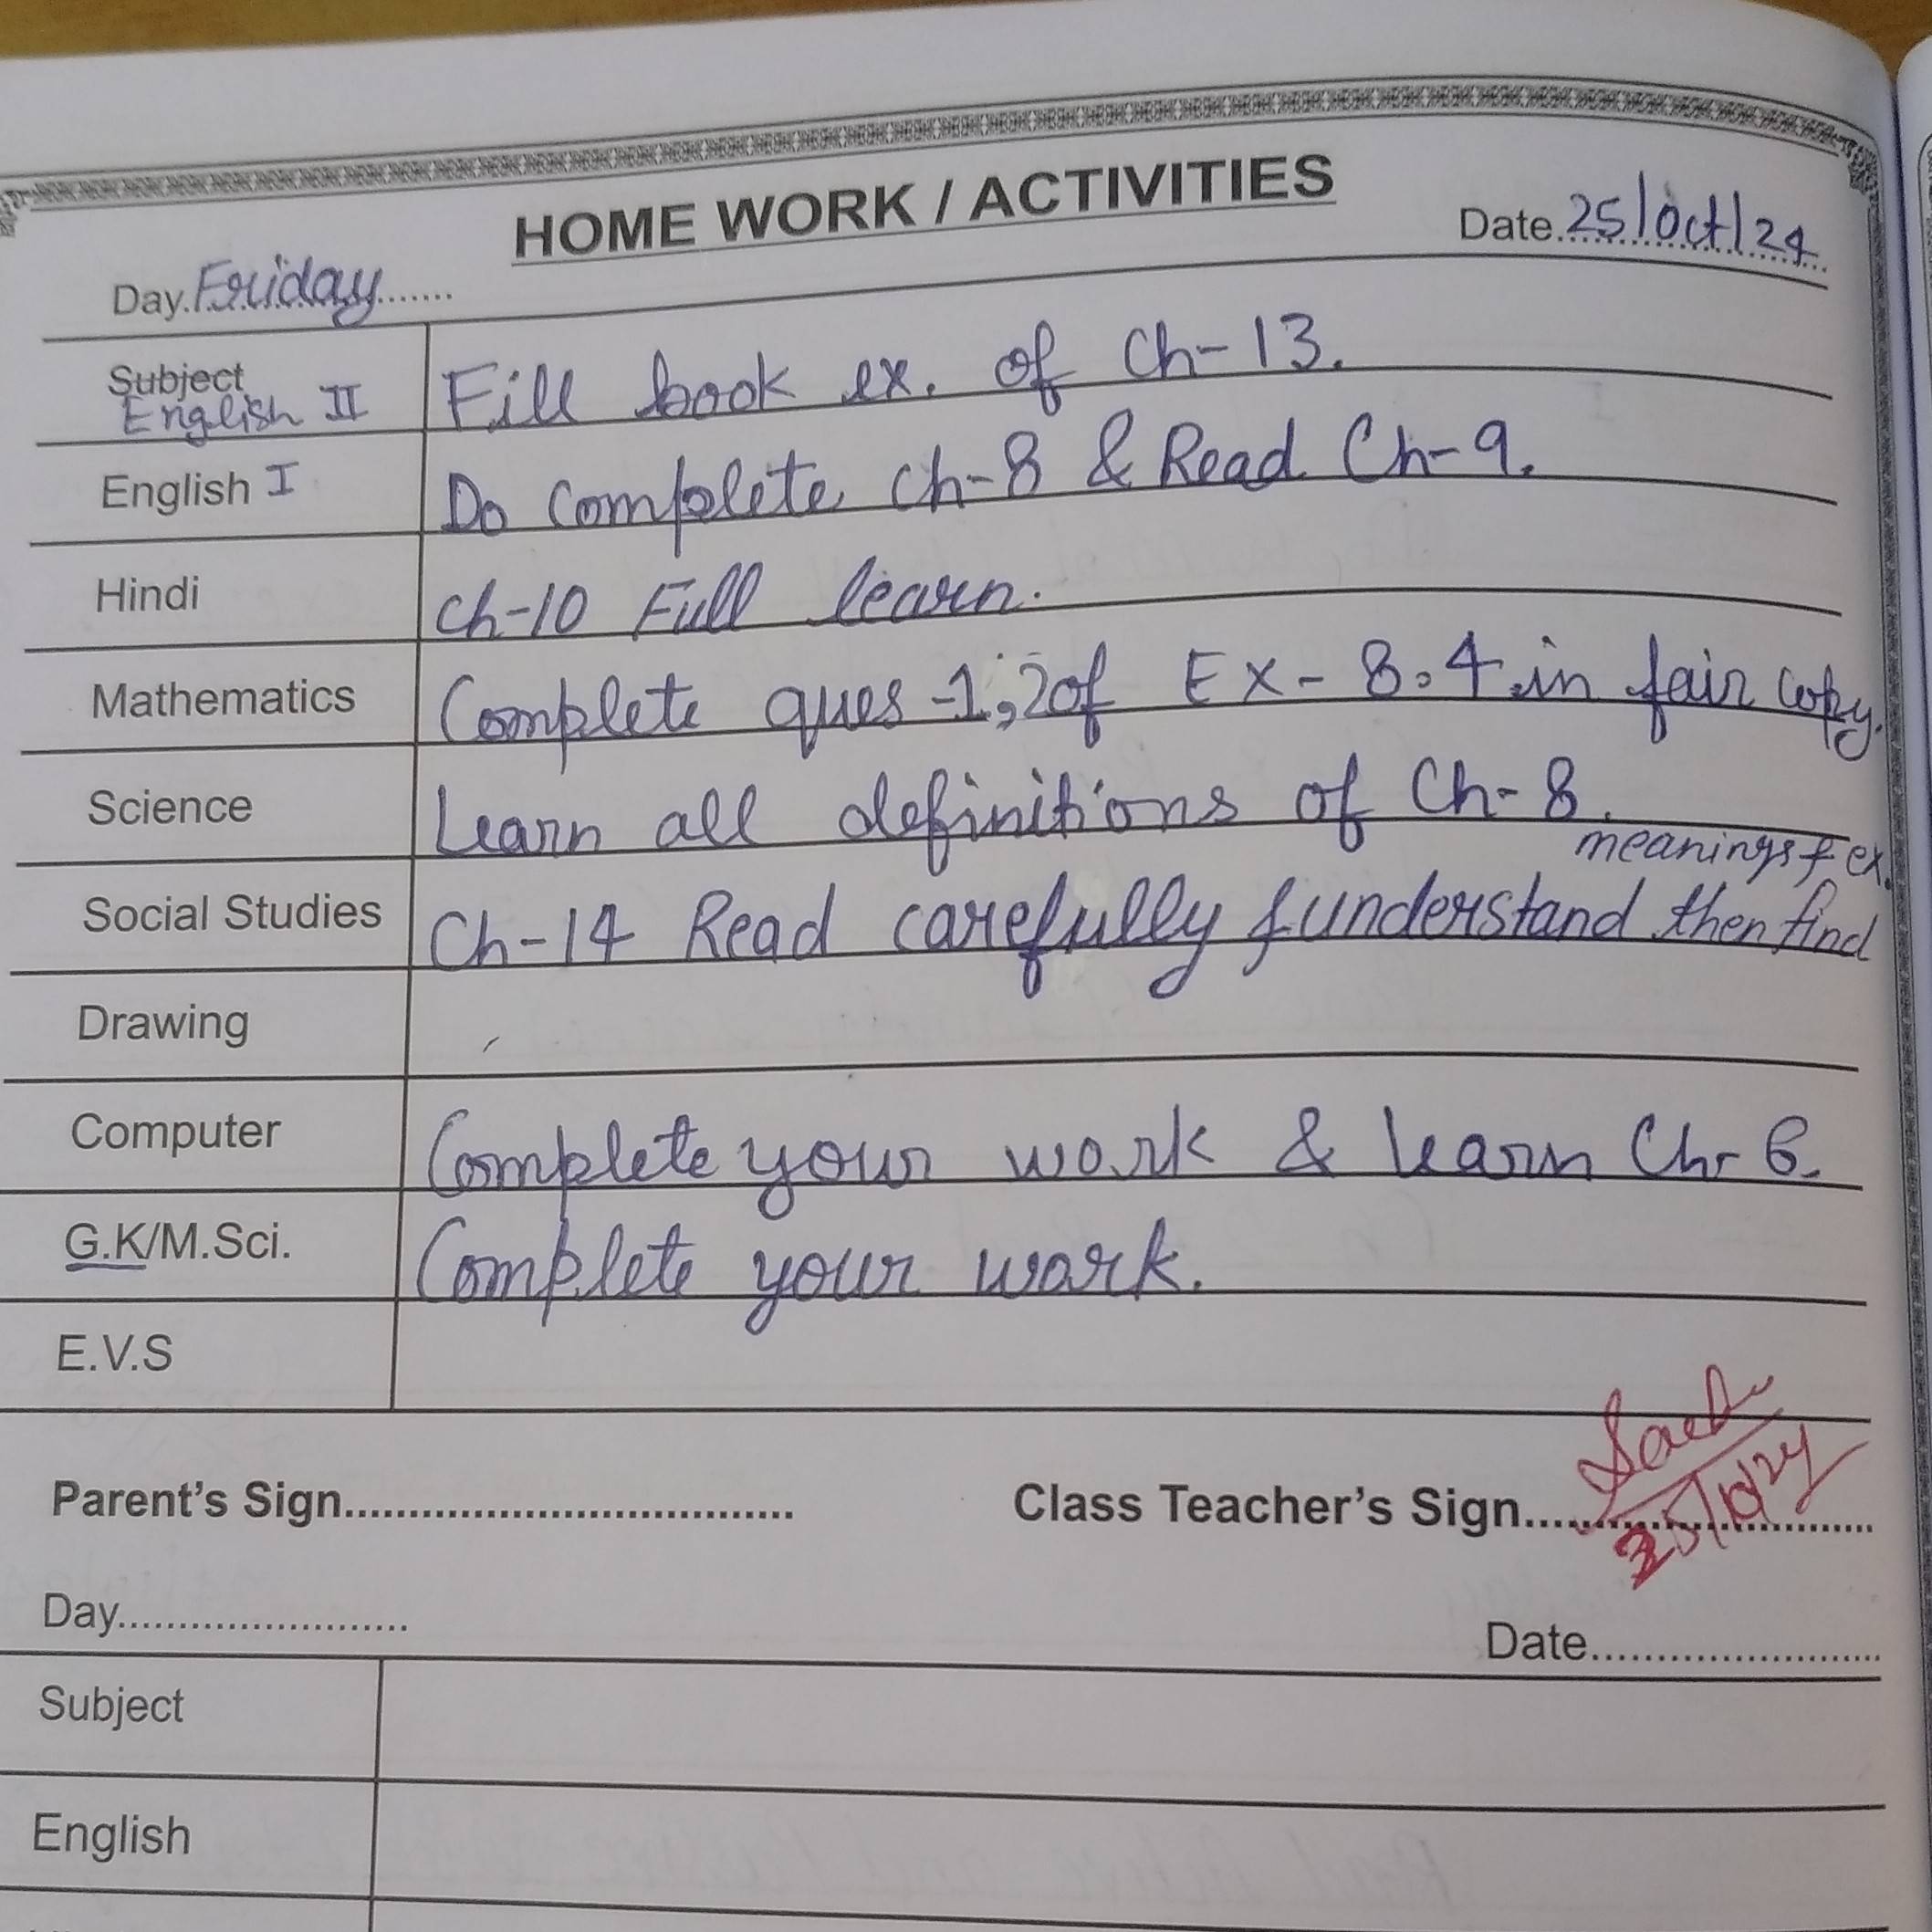 HOME WORK / ACTIVITIES
Day.Friday....... Date.25/Oct/24
Subject
English II Fill book ex. of Ch-13.
English I Do Complete Ch-8 & Read Ch-9.
Hindi Ch-10 Full learn.
Mathematics Complete ques-1,2 of Ex-8.4 in fair copy.
Science Learn all definitions of Ch-8.
meanings & ex.
Social Studies Ch-14 Read carefully & understand then find
Drawing
Computer Complete your work & learn Ch-6.
G.K/M.Sci. Complete your work.
E.V.S
Parent's Sign................................... Class Teacher's Sign...........................
25/10/24
Day........................ Date........................
Subject
English